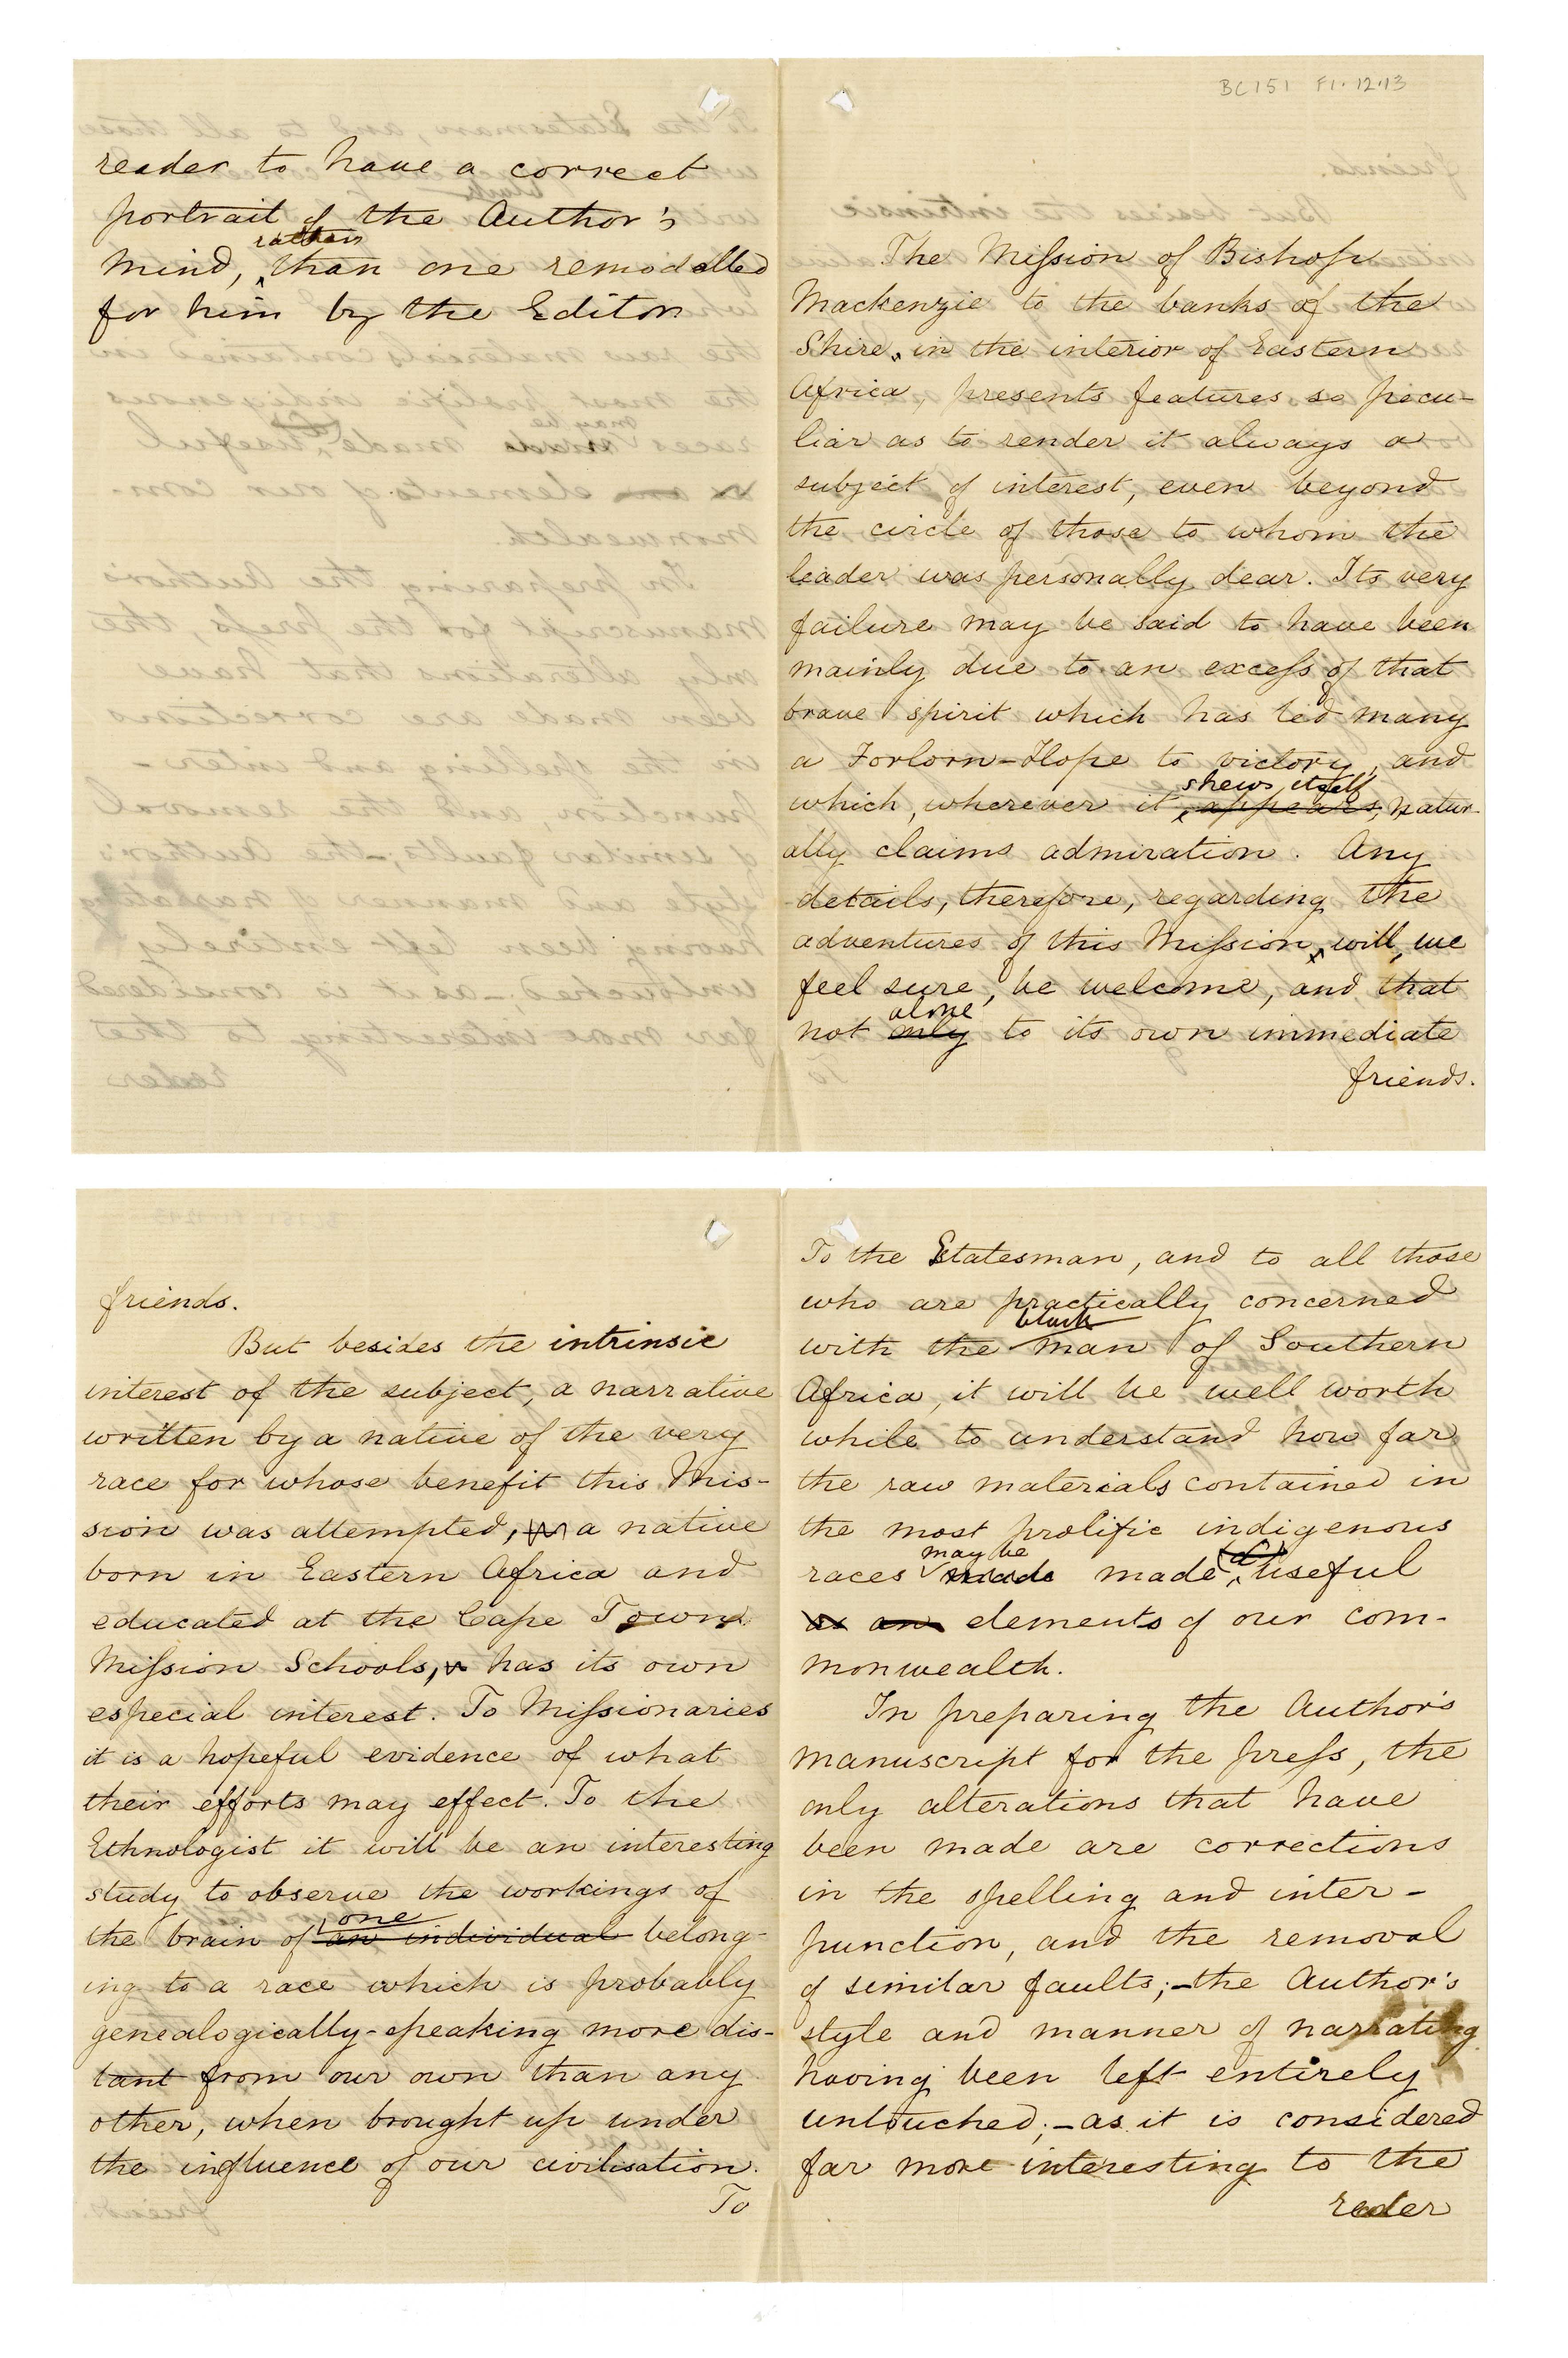 BC151 F1.12.13
The Mission of Bishop
Mackenzie to the banks of the
Shire, in the interior of Eastern
Africa, presents features so pecu-
liar as to render it always a
subject of interest, even beyond
the circle of those to whom the
leader was personally dear. Its very
failure may be said to have been
mainly due to an excess of that
brave spirit which has led many
a Forlorn-Hope to victory, and
shews itself
which, wherever it appears, natur-
ally claims admiration. Any
details, therefore, regarding the
adventures of this Mission, will, we
feel sure, be welcome, and that
alone
not only to its own immediate
friends.
friends.
But besides the intrinsic
interest of the subject, a narrative
written by a native of the very
race for whose benefit this Mis-
sion was attempted, a native
born in Eastern Africa and
educated at the Cape Town
Mission Schools, has its own
especial interest. To Missionaries
it is a hopeful evidence of what
their efforts may effect. To the
Ethnologist it will be an interesting
study to observe the workings of
one
the brain of an individual belong-
ing to a race which is probably
genealogically-speaking more dis-
tant from our own than any
other, when brought up under
the influence of our civilisation.
To
To the Statesman, and to all those
who are practically concerned
black
with the man of Southern
Africa, it will be well worth
while to understand how far
the raw materials contained in
the most prolific indigenous
may be
races made made useful
as an elements of our com-
monwealth.
In preparing the Author's
manuscript for the press, the
only alterations that have
been made are corrections
in the spelling and inter-
punction, and the removal
of similar faults;-the Author's
style and manner of narrating
having been left entirely
untouched;-as it is considered
far more interesting to the
reader
reader to have a correct
portrait of the Author's
rather
mind, than one remodelled
for him by the Editor